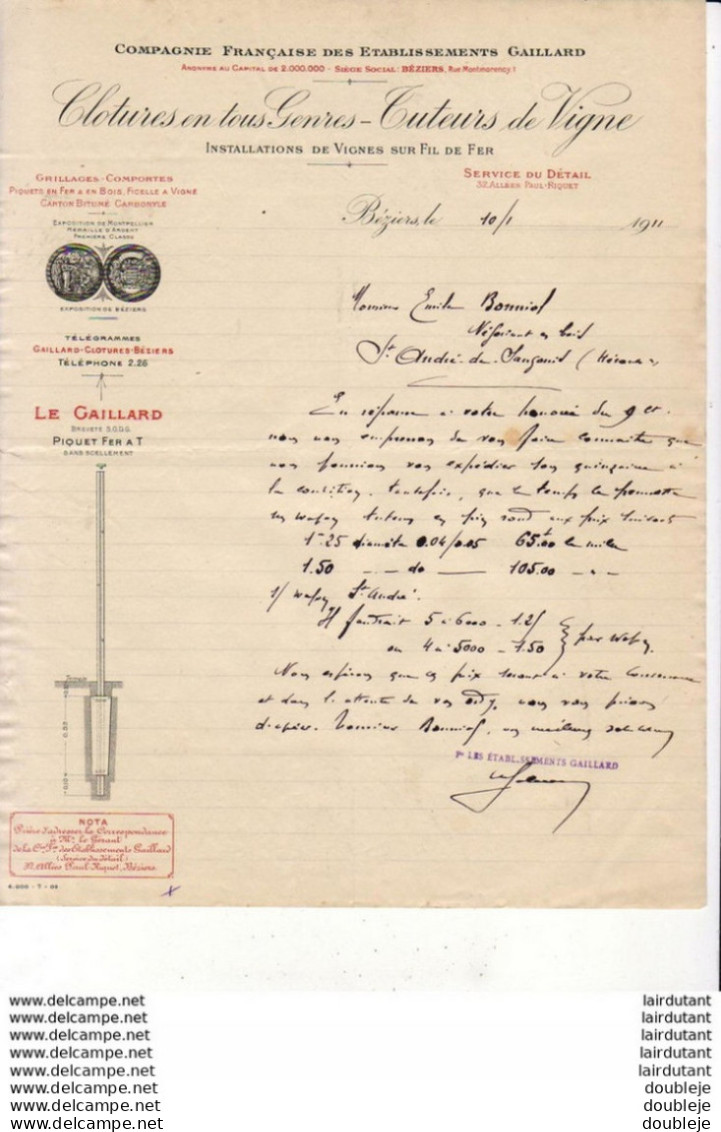 COMPAGNIE FRANÇAISE DES ETABLISSEMENTS GAILLARD
ANONYME AU CAPITAL DE 2.000.000 - SIÈGE SOCIAL: BÉZIERS, Rue Montmorency, 1
Clotures en tous Genres - Tuteurs de Vigne
INSTALLATIONS DE VIGNES SUR FIL DE FER
GRILLAGES-COMPORTES
PIQUETS EN FER & EN BOIS, FICELLE A VIGNE
CARTON BITUMÉ CARBONYLE
EXPOSITION DE MONTPELLIER
MÉDAILLE D'ARGENT
PREMIÈRE CLASSE
EXPOSITION DE BÉZIERS
TÉLÉGRAMMES
GAILLARD-CLOTURES-BÉZIERS
TÉLÉPHONE 2.26
LE GAILLARD
BREVETÉ S.G.D.G.
PIQUET FER A T
SANS SCELLEMENT
SERVICE DU DÉTAIL
32, ALLÉES PAUL-RIQUET
Béziers, le 10/1 1911
Monsieur Emile Bonniol
Négociant en bois
St André de Sangonis (Hérault)
En réponse à votre honorée du 9 ct.
nous nous empressons de vous faire connaître que
nous pourrions vous expédier sous quinzaine à
la condition, toutefois, que le temps le permette
un wagon tuteurs en pin rond aux prix suivants
1m25 diamètre 0.04/0.05 65.00 le mille
1.50 — do — 105.00 - -
s/ wagon St André.
Il faudrait 5 à 6000 - 1.25
ou 4 à 5000 - 1.50 } par wagon
Nous espérons que ces prix seront à votre convenance
et dans l'attente de vos ordres, nous vous prions
d'agréer, Monsieur Bonniol, nos meilleures salutations
Pr LES ÉTABLISSEMENTS GAILLARD
Terrain
0.10
NOTA
Prière d'adresser la Correspondance
à Mr. le Gérant
de la Cie Fse des Etablissements Gaillard
(Service du détail)
32, Allées Paul-Riquet, Béziers.
www.delcampe.net lairdutant
www.delcampe.net lairdutant
www.delcampe.net lairdutant
www.delcampe.net lairdutant
www.delcampe.net lairdutant
www.delcampe.net doubleje
www.delcampe.net doubleje
www.delcampe.net doubleje